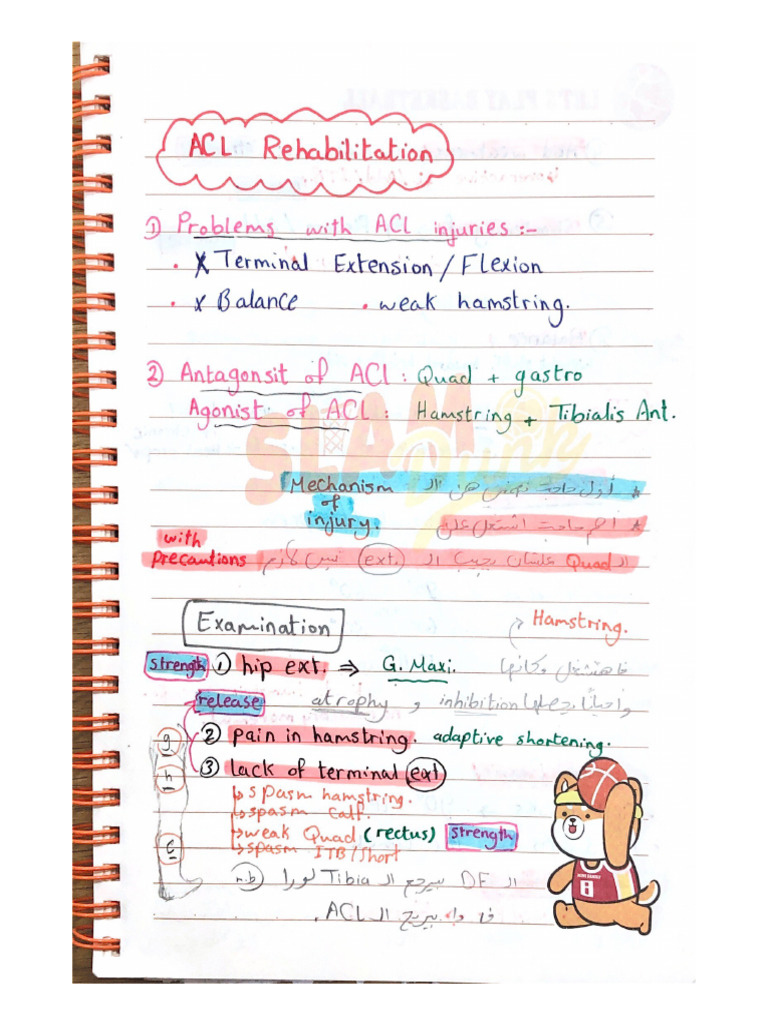 ACL Rehabilitation
① Problems with ACL injuries :-
• x Terminal Extension / Flexion
• x Balance • weak hamstring.
2) Antagonsit of ACL : Quad + gastro
Agonist of ACL : Hamstring + Tibialis Ant.
SLAM
Dunk
* أول حاجة نهتم هي الـ Mechanism of injury.
* اهم حاجة اشتغل على
الـ Quad علشان يجيب الـ ext. بس لازم with precautions
Examination
Hamstring.
strength ① hip ext. ⇒ G. Maxi. فاهتشتغل مكانها
واحيانا يجعلها inhibition و atrophy
release
② pain in hamstring. adaptive shortening.
③ lack of terminal ext
↳ spasm hamstring.
↳ spasm calf.
↳ weak Quad (rectus) strength
↳ spasm ITB/short
g
h
c
n.b الـ DF بيرجع الـ Tibia لورا
فـ دا بيريح الـ ACL.